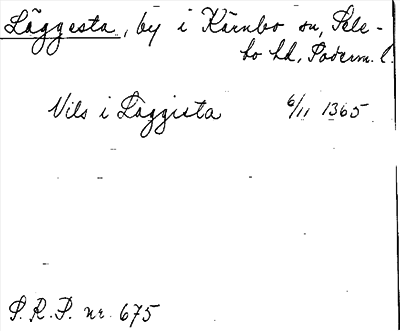 Läggesta, by i Kärnbo sn, Sele-
bo hd, Söderm. l.
Nils i Læggista 6/11 1365
S. R. P. nr. 675